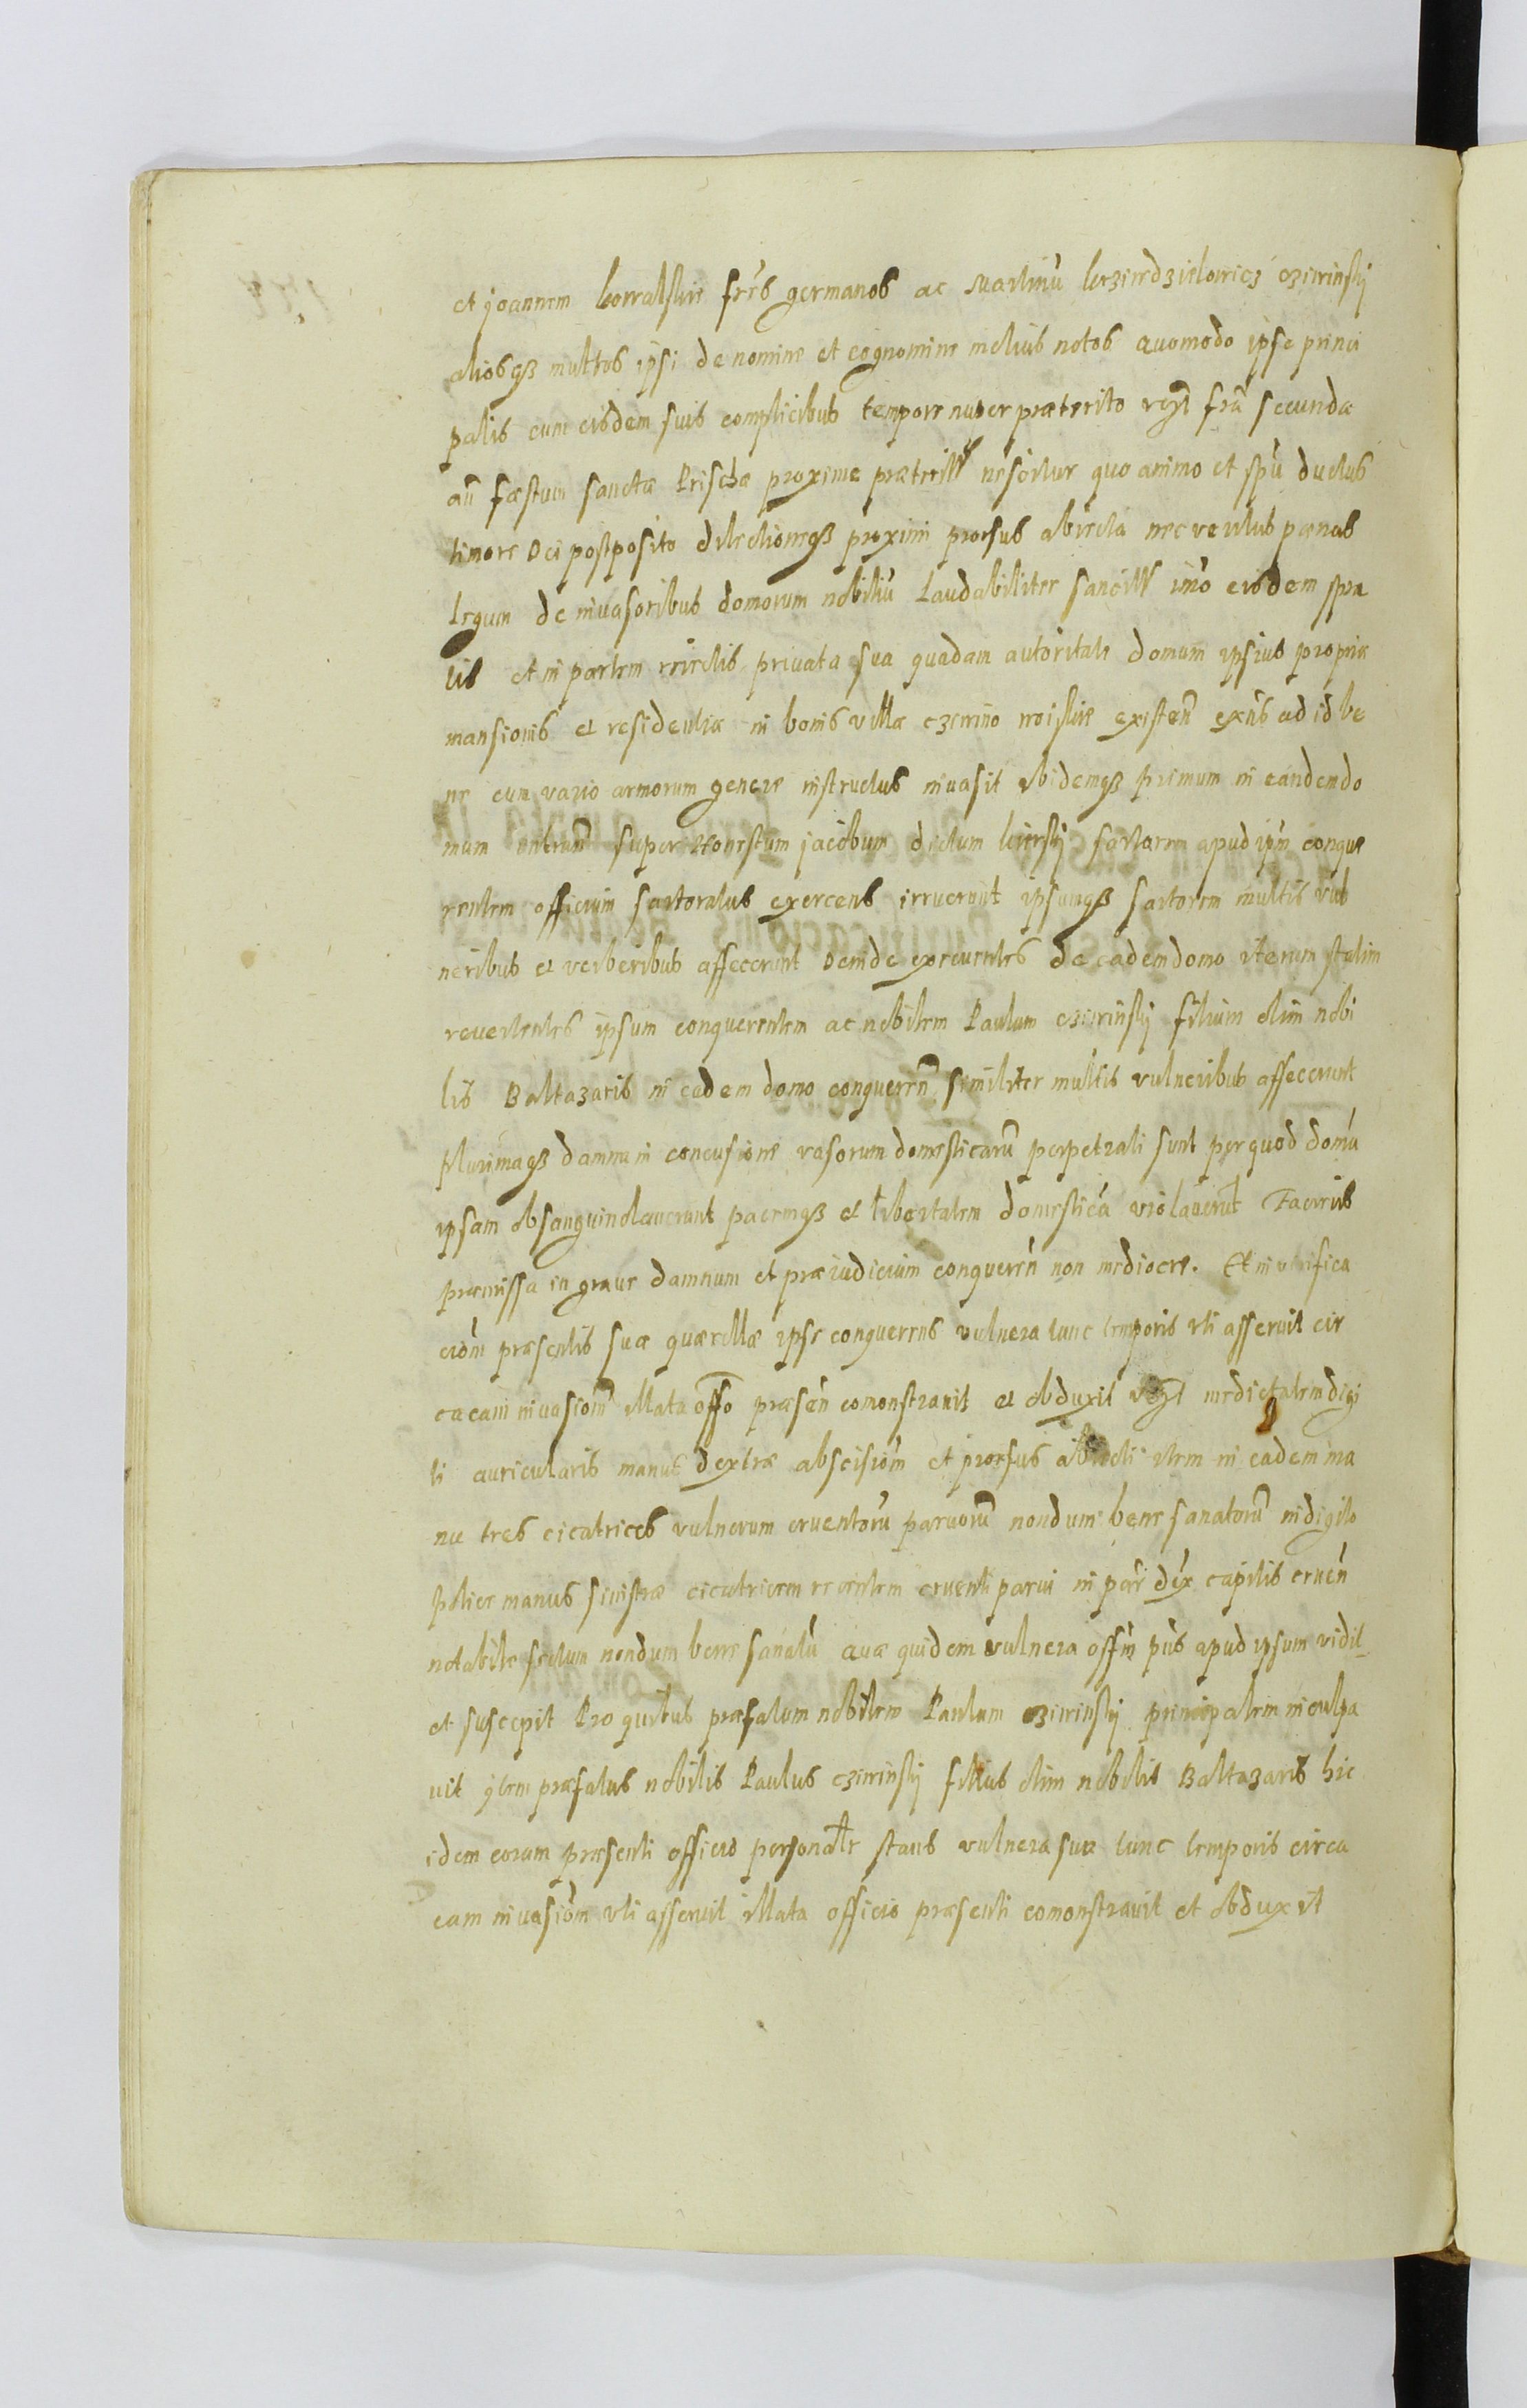 et joannem kowalskie frēs germanos ac Martinū czirinskÿ
aliosqȝ multos ipsi de nomine et cognomine melius notos Quomodo ipse princi
palis cum eisdem suis complicibus tempore nuper præterito vcꝫt fria secunda
añ fæstum sanctæ Prischæ proxime præteriti nescitur quo animo et spū ductus
timore Dei postposito dilectioneqȝ proximi prorsus abiecta nec veritus pœnas
legum de invasoribus domorum nobiliū Laudabiliter sancitis imo eisdem spre
tis et in partem reiectis privata sua quadam autoritate domum ipsius propriæ
mansionis et residentiæ in bonis villæ czirino existeñ exñs ad id be
ne cum vario armorum genere instructus invasit ibidemqȝ primum in eandem do
mum super Honestum jacobum dictum sartorem apud ipm conque
rentem officium sartoratus exercens irruerunt ipsumqȝ sartorem multis vul
neribus et verberibus affecerunt Deinde excurrentes de eadem domo iterum statim
revertentes ipsum conquerentem ac nobilem Paulum czirinskÿ filium olim nobi
lis Baltazaris in eadem domo conquereñ similiter multis vulneribus affecerunt
plurimaqȝ damna in concusione vasorum domesticarū perpetrati sunt per quod domū
ipsam obsanguinolauerunt pacemqȝ et libertatem domesticā violauerūt Facientes
præmissa in graue damnum et præiudicium conquereñ non mediocre. Et in verifica
cioñ præsentis suæ quærellæ ipse conquerens vulnera tunc temporis uti asseruit cir
ca eam invasioñ illata offo præseñ comonstravit et obduxit vcꝫt medietatem digi
ti auricularis manus dextræ abscisioñ et prorsus abiecti Item in eadem ma
nu tres cicatrices vulnerum cruentorū paruorū nondum bene sanatorū in digito
police manus sinistræ cicatricem recentem cruenti parui in par dex capitis crueñ
notabile sectum nondum bene sanatū Quæ quidem vulnera offm pūs apud ipsum vidit
et suscepit Pro quibus præfatum nobilem Paulum czirinskÿ principalem inculpa
vit ytem præfatus nobilis Paulus czirinskÿ filius olim nobilis Baltazaris hic
idem coram præsenti officio personalr stans vulnera sua tunc temporis circa
eam invasiōm uti asseruit illata officio præsenti comonstrauit et obduxit